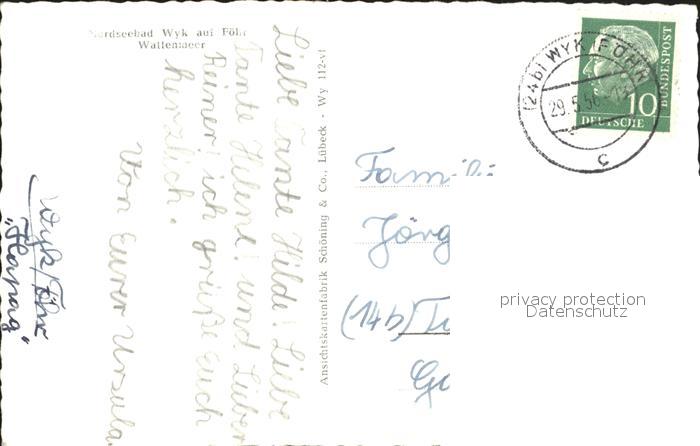 Nordseebad Wyk auf Föhr
Wattenmeer
Liebe Tante Hilde! Liebe
Tante Helene! und Lieber
Reiner! ich grüße Euch
herzlich.
Von Eurer Ursula
Wyk/Föhr
Ansichtskartenfabrik Schöning & Co., Lübeck - Wy 112-vl
(24b) WYK (FÖHR)
29.5.56
c
10
DEUTSCHE
BUNDESPOST
Fam
Jörg
(14b)
privacy protection
Datenschutz